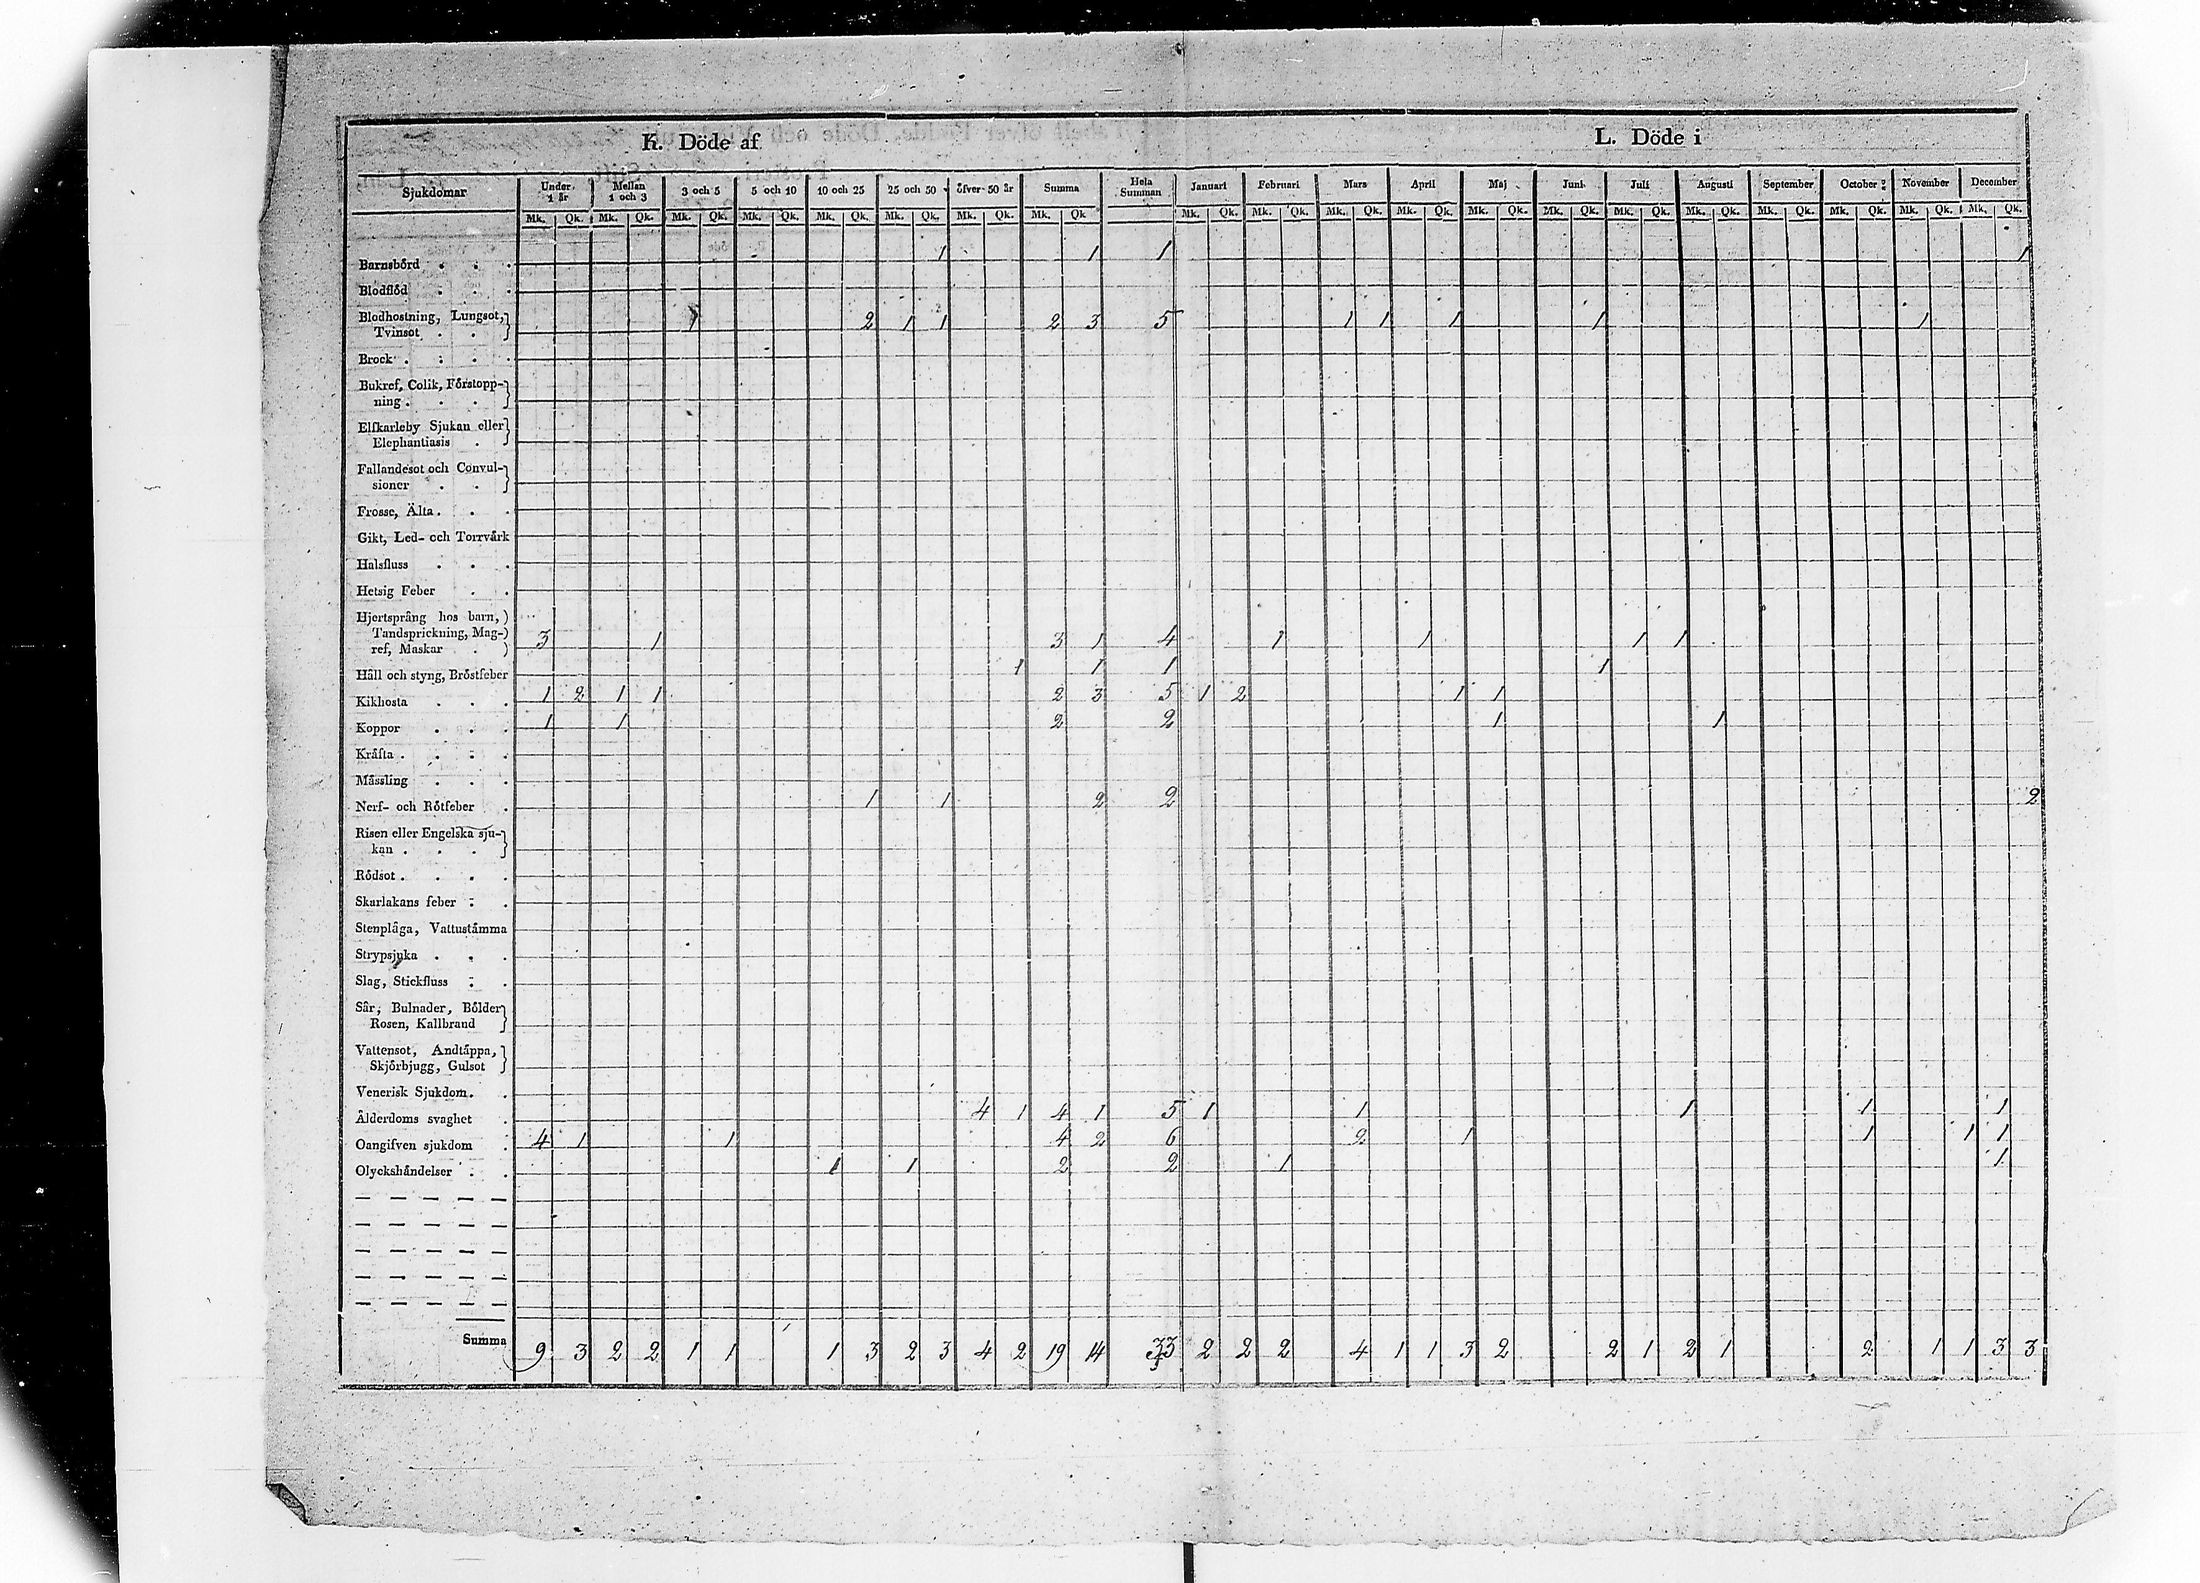 K. Döde af
L. Döde i
Sjukdomar Under 1 år Mellan 1 och 3 3 och 5 5 och 10 10 och 25 25 och 50 öfver 50 år Summa Hela Summan Januari Februari Mars April Maj Juni Juli Augusti September October November December
Mk. Qk. Mk. Qk. Mk. Qk. Mk. Qk. Mk. Qk. Mk. Qk. Mk. Qk. Mk. Qk Mk. Qk. Mk. Qk. Mk. Qk. Mk. Qk. Mk. Qk. Mk. Qk. Mk. Qk. Mk. Qk. Mk. Qk. Mk. Qk. Mk. Qk. Mk. Qk.
Barnsbörd . . . 1 1 1 1
Blodflöd . . .
Blodhostning, Lungsot,
Tvinsot . . 1 2 1 1 2 3 5 1 1 1 1 1
Brock . . . .
Bukref, Colik, Förstopp-
ning . . .
Elfkarleby Sjukan eller
Elephantiasis .
Fallandesot och Convul-
sioner . .
Frosse, Älta . . .
Gikt, Led- och Torrvärk
Halsfluss . . .
Hetsig Feber . .
Hjertsprång hos barn,
Tandsprickning, Mag-
ref, Maskar . 3 1 3 1 4 1 1 1 1
Håll och styng, Bröstfeber 1 1 1 1
Kikhosta . . . 1 2 1 1 2 3 5 1 2 1 1
Koppor . . . 1 1 2 2 1 1
Kräfta . . . .
Mässling . . .
Nerf- och Rötfeber . 1 1 2 2 2
Risen eller Engelska sju-
kan . . .
Rödsot . . . .
Skarlakans feber . .
Stenplåga, Vattustämma
Strypsjuka . . .
Slag, Stickfluss . .
Sår, Bulnader, Bölder
Rosen, Kallbrand
Vattensot, Andtäppa,
Skjörbjugg, Gulsot
Venerisk Sjukdom . .
Ålderdoms svaghet . 4 1 4 1 5 1 1 1 1 1
Oangifven sjukdom . 4 1 1 4 2 6 2 1 1 1 1
Olyckshändelser . . 1 1 2 2 1 1
Summa 9 3 2 2 1 1 1 3 2 3 4 2 19 14 33 2 2 2 4 1 1 3 2 2 1 2 1 2 1 1 3 3